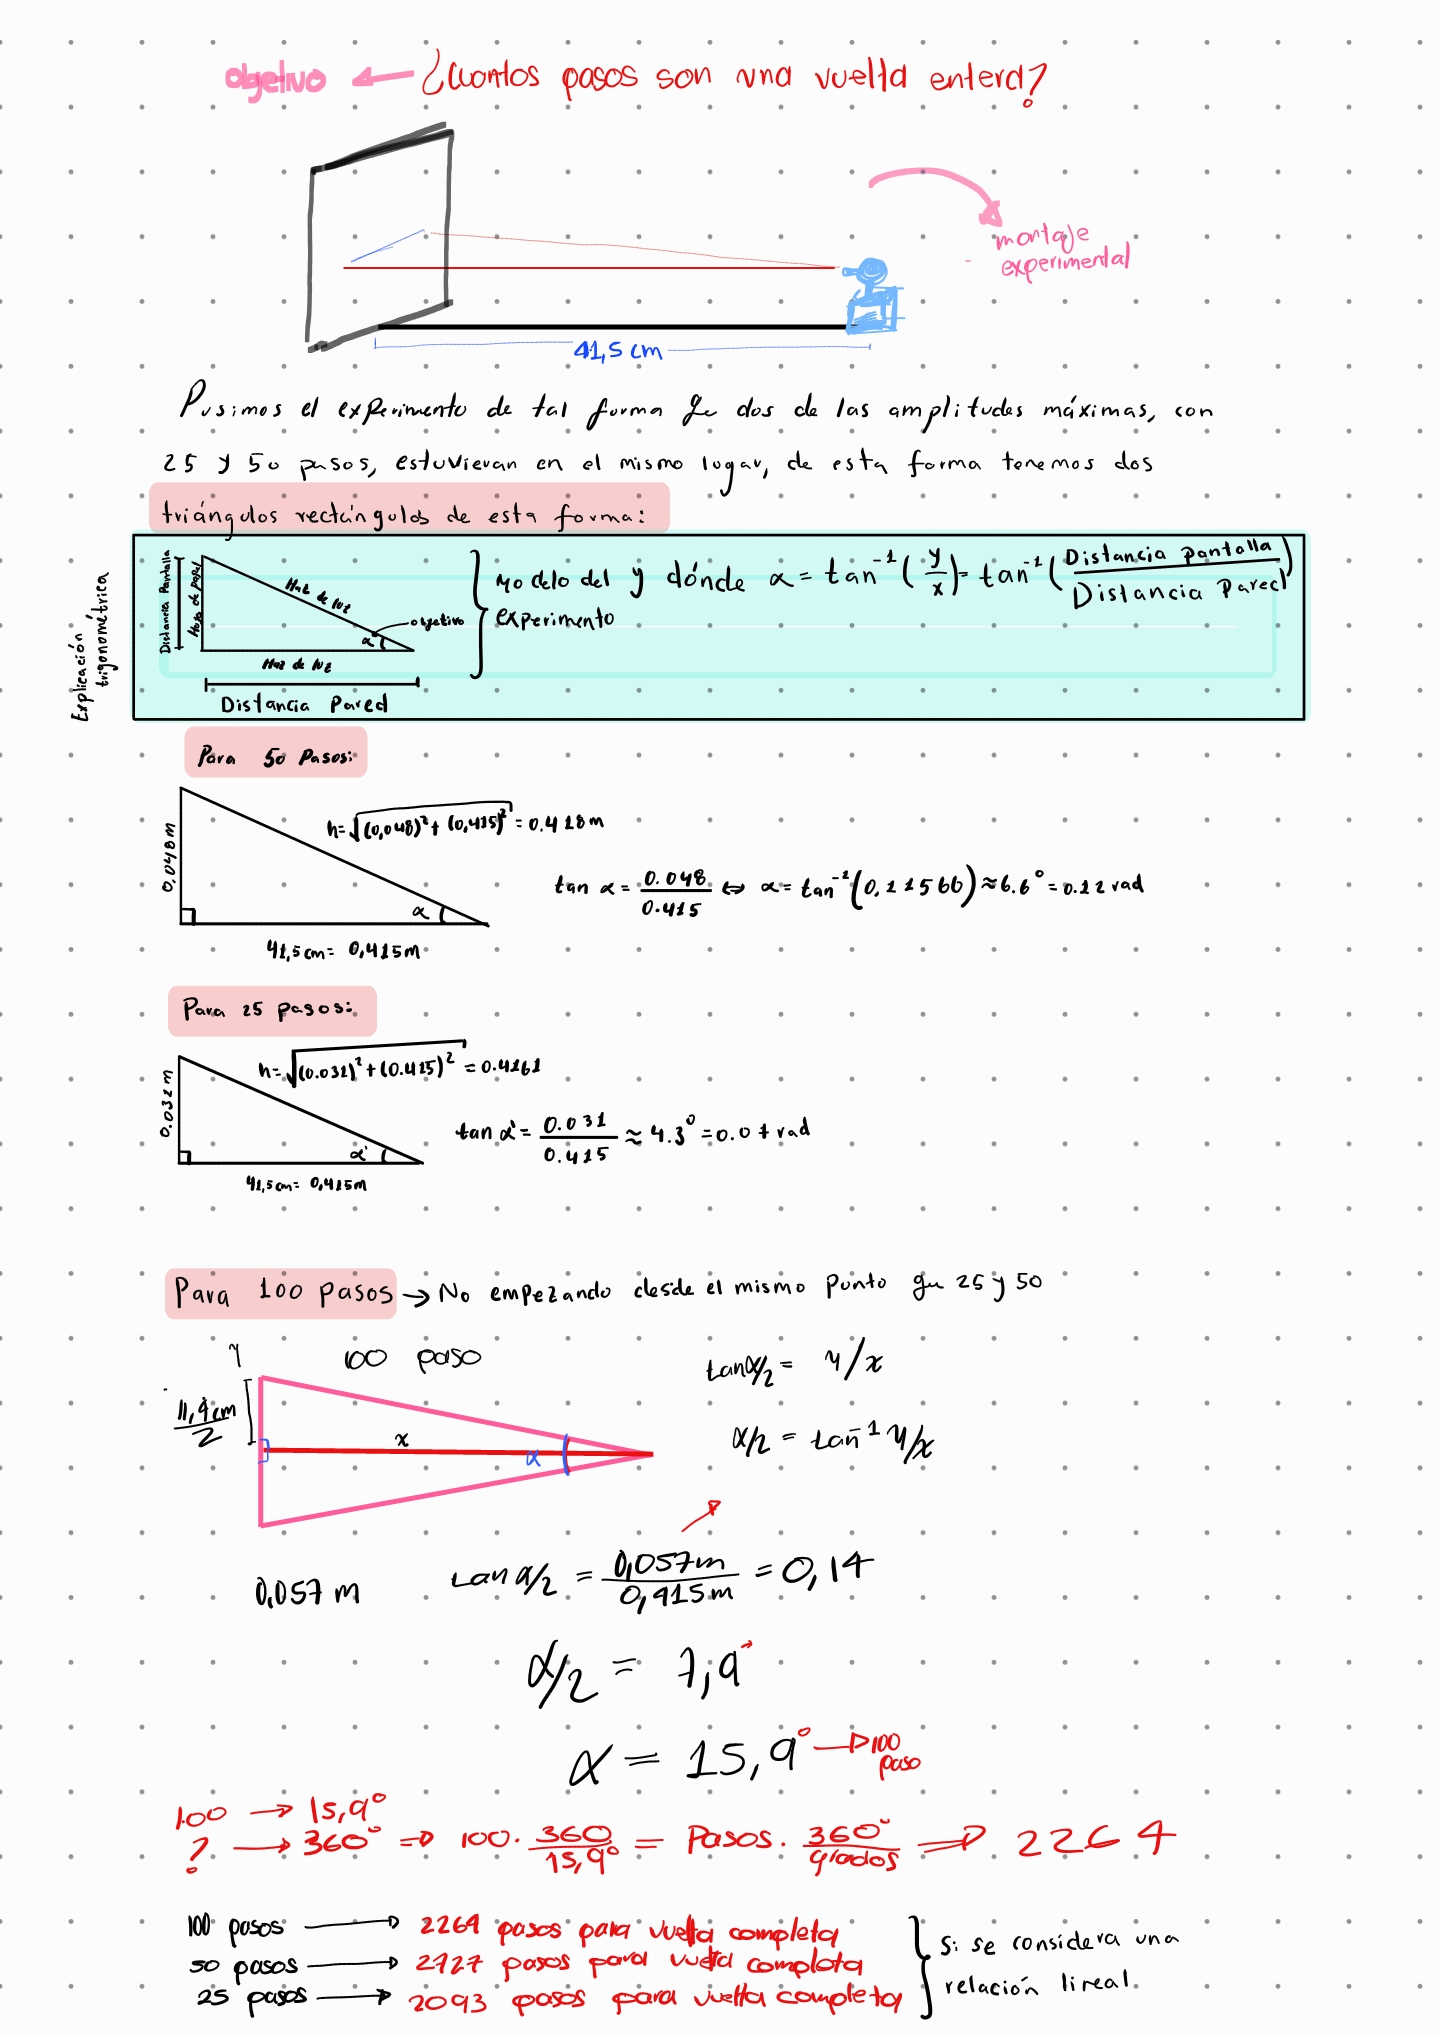 objetivo ← ¿Cuantos pasos son una vuelta entera?
montaje
experimental
41,5 cm
Pusimos el experimento de tal forma qe dos de las amplitudes máximas, con
25 y 50 pasos, estuvieran en el mismo lugar, de esta forma tenemos dos
triángulos rectángulos de esta forma:
Explicación
trigonométrica
Distancia Pantalla
Hoja de papel
Haz de luz
objetivo
α
Haz de luz
Distancia Pared
Modelo del
experimento
y dónde α = tan⁻¹(y/x) = tan⁻¹(Distancia pantalla/Distancia Pared)
Para 50 Pasos:
0,048 m
h=√(0,048)²+(0,415)² = 0.418 m
α
41,5 cm = 0,415 m
tan α = 0.048/0.415 ⇔ α = tan⁻¹(0,11566) ≈ 6.6° = 0.12 rad
Para 25 pasos:
0.031 m
h=√(0.031)²+(0.415)² = 0.4161
α'
41,5 cm = 0,415 m
tan α' = 0.031/0.415 ≈ 4.3° = 0.07 rad
Para 100 pasos → No empezando desde el mismo punto qu 25 y 50
y
100 paso
11,4cm/2
x
α
tan α/2 = y/x
α/2 = tan⁻¹ y/x
0,057 m
tan α/2 = 0,057m/0,415m = 0,14
α/2 = 7,9°
α = 15,9° → 100
paso
100 → 15,9°
? → 360° ⇒ 100 · 360/15,9° = Pasos · 360°/grados ⇒ 2264
100 pasos → 2264 pasos para vuelta completa
50 pasos → 2727 pasos para vuelta completa
25 pasos → 2093 pasos para vuelta completa
Si se considera una
relación lineal.